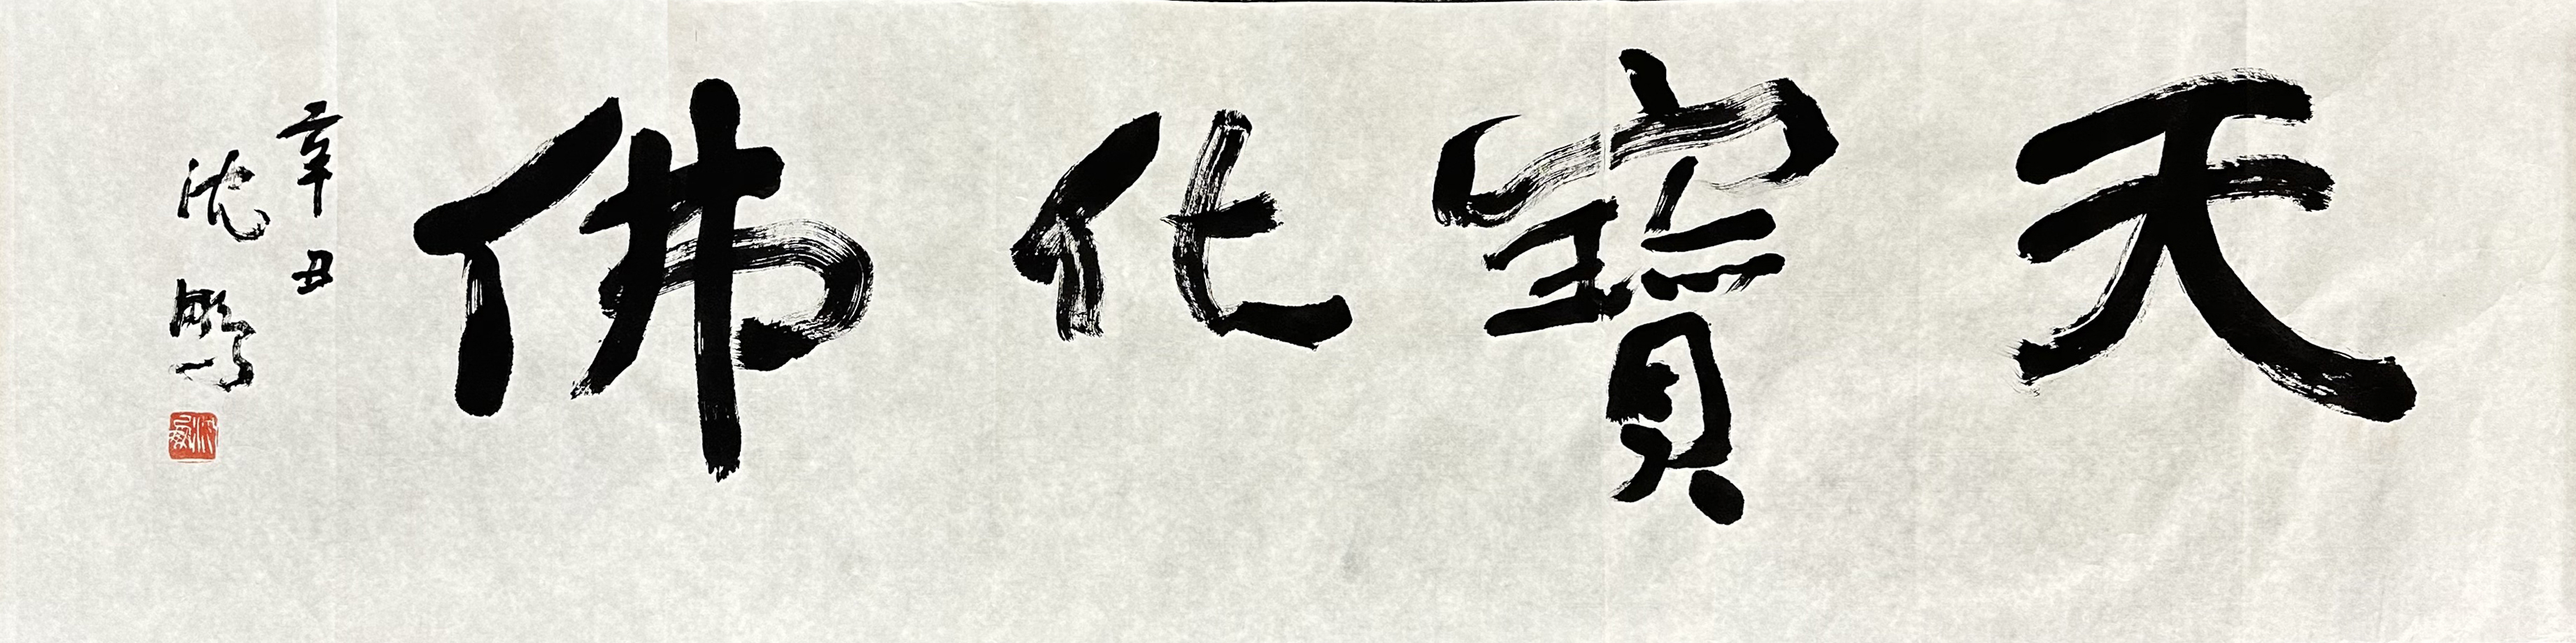 天寶化佛
辛丑
沈鵬